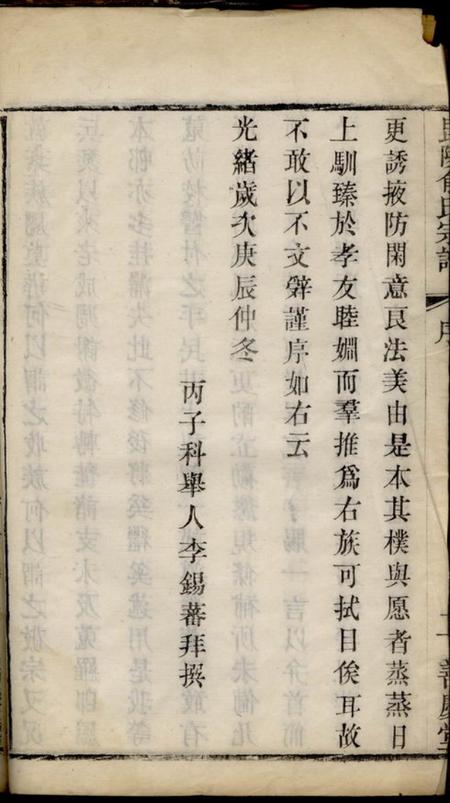 俞氏宗譜
序
善慶堂
更誘掖防閑意良法美由是本其樸與愿者蒸蒸日
上馴臻於孝友睦婣而羣推為右族可拭目俟耳故
不敢以不文辤謹序如右云
光緒歲次庚辰仲冬
丙子科舉人李錫蕃拜撰